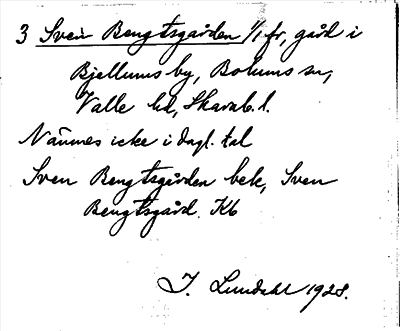 3 Sven Bengtsgården 1/1 fr, gård i
Bjellums by, Bolums sn,
Valle hd, Skarab. l.
Nämnes icke i dagl. tal
Sven Bengtsgården bek, Sven
Bengtsgård. Kb
J. Lundahl 1928.